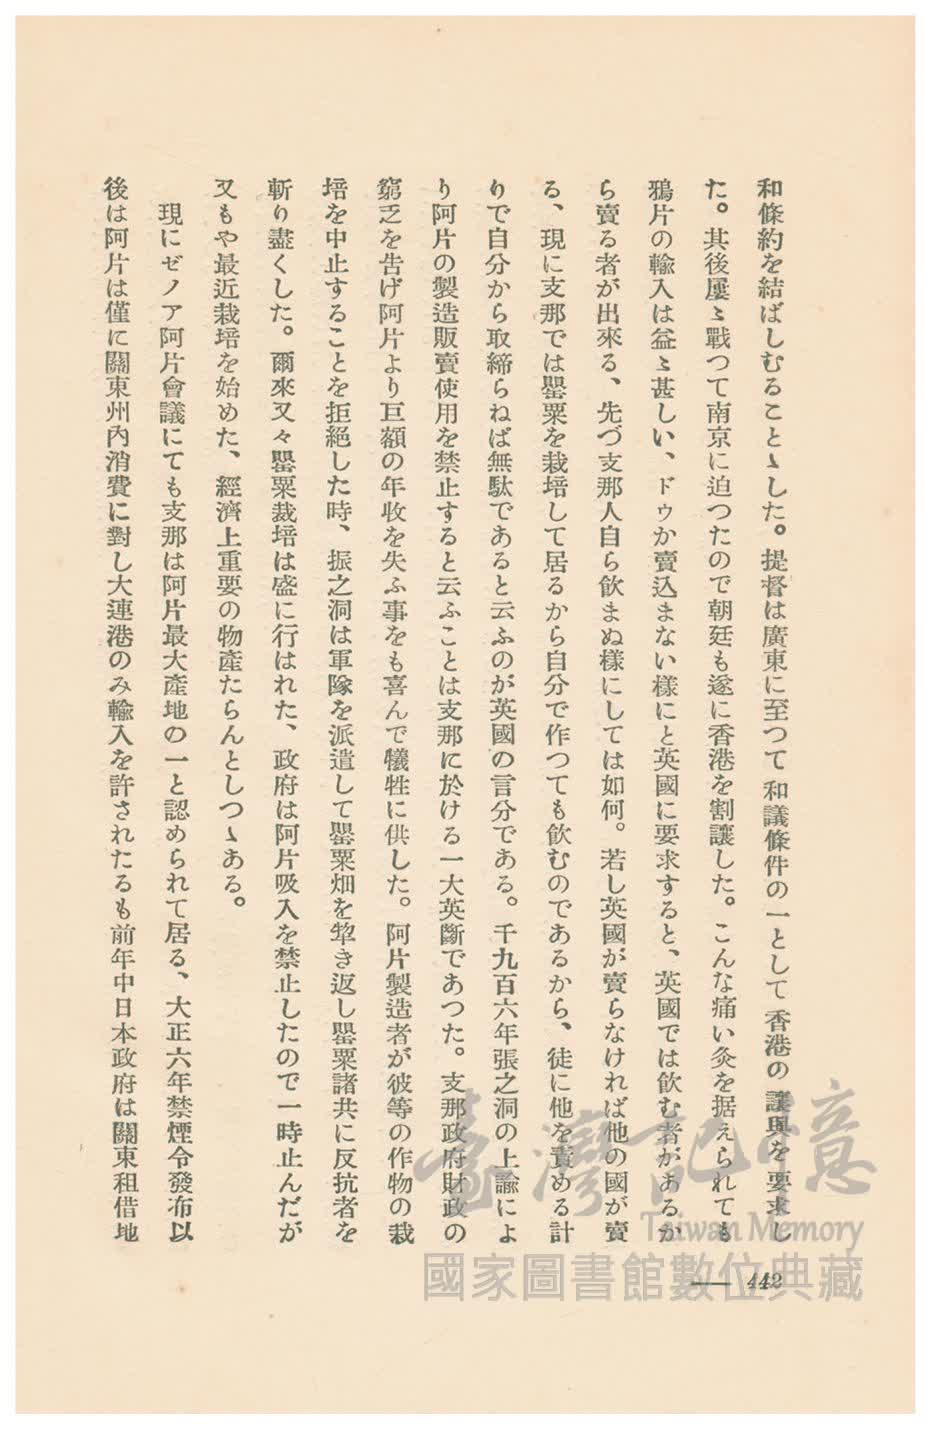 和條約を結ばしむることゝした。提督は廣東に至つて和議條件の一として香港の讓與を要求し
た。其後屢〻戰つて南京に迫つたので朝廷も遂に香港を割讓した。こんな痛い灸を据えられても
鴉片の輸入は益〻甚しい、ドゥか賣込まない樣にと英國に要求すると、英國では飮む者があるか
ら賣る者が出來る、先づ支那人自ら飮まぬ樣にしては如何。若し英國が賣らなければ他の國が賣
る、現に支那では罌粟を栽培して居るから自分で作つても飮むのであるから、徒に他を責める計
りで自分から取締らねば無駄であると云ふのが英國の言分である。千九百六年張之洞の上諭によ
り阿片の製造販賣使用を禁止すると云ふことは支那に於ける一大英斷であつた。支那政府財政の
窮乏を告げ阿片より巨額の年收を失ふ事をも喜んで犧牲に供した。阿片製造者が彼等の作物の栽
培を中止することを拒絕した時、振之洞は軍隊を派遣して罌粟畑を犂き返し罌粟諸共に反抗者を
斬り盡くした。爾來又々罌粟栽培は盛に行はれた、政府は阿片吸入を禁止したので一時止んだが
又もや最近栽培を始めた、經濟上重要の物產たらんとしつゝある。
現にゼノア阿片會議にても支那は阿片最大產地の一と認められて居る、大正六年禁煙令發布以
後は阿片は僅に關東州內消費に對し大連港のみ輸入を許されたるも前年中日本政府は關東租借地
442
臺灣記憶
Taiwan Memory
國家圖書館數位典藏